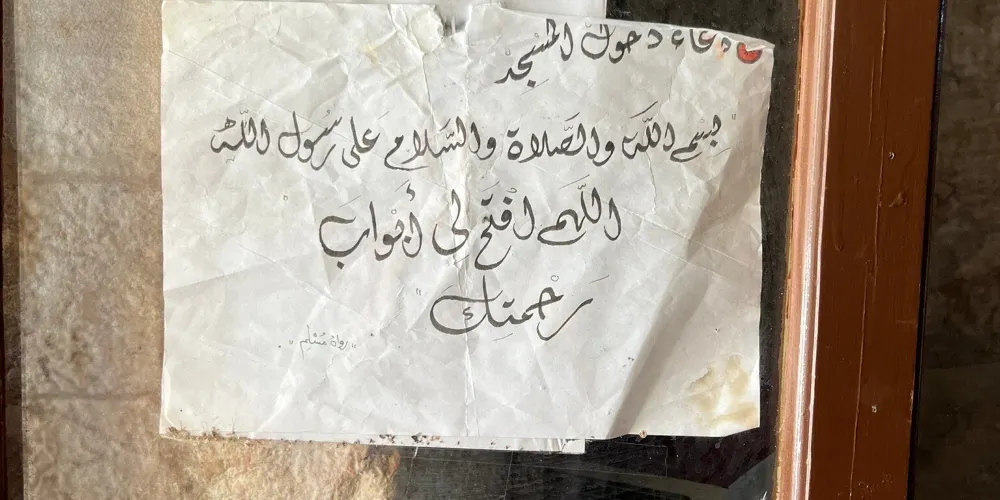 دعاء دخول المسْجِدْ
"بِسْمِ اللَّه والصَّلاة والسَّلامِ عَلى رسُول اللّه
اللّهم افْتَحْ لي أَبْوابَ
رَحْمتِك"
"رواهُ مُسْلِم"